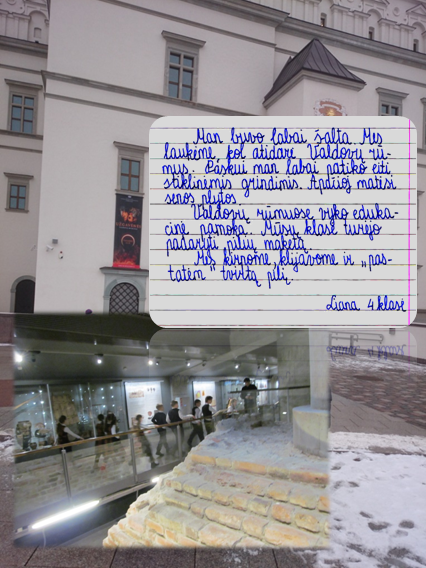 Man buvo labai šalta. Mes
laukėme, kol atidarė Valdovų rū-
mus. Paskui man labai patiko eiti
stiklinėmis grindimis. Apačioj matėsi
senos plytos.
Valdovų rūmuose vyko eduka-
cinė pamoka. Mūsų klasė turėjo
padaryti pilių maketą.
Mes kirpome, klijavome ir „pas-
tatėm“ tvirtą pilį.
Liana 4 klasė